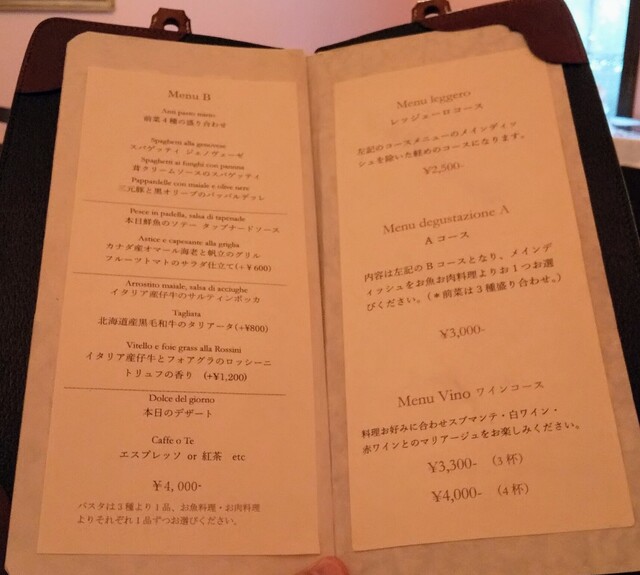 Menu B
Anti pasto misto
前菜4種の盛り合わせ
Spaghetti alla genovese
スパゲッティ ジェノヴェーゼ
Spaghetti ai funghi con panna
茸クリームソースのスパゲッティ
Pappardelle con maiale e olive nere
三元豚と黒オリーブのパッパルデッレ
Pesce in padella, salsa di tapenade
本日鮮魚のソテー タップナードソース
Astice e capesante alla griglia
カナダ産オマール海老と帆立のグリル
フルーツトマトのサラダ仕立て(+¥600)
Arrostino maiale, salsa di acciughe
イタリア産仔牛のサルティンボッカ
Tagliata
北海道産黒毛和牛のタリアータ(+¥800)
Vitello e foie grass alla Rossini
イタリア産仔牛とフォアグラのロッシーニ
トリュフの香り (+¥1,200)
Dolce del giorno
本日のデザート
Caffe o Te
エスプレッソ or 紅茶 etc
¥4,000-
パスタは3種より1品、お魚料理・お肉料理
よりそれぞれ1品ずつお選びください。
Menu leggero
レッジェーロコース
左記のコースメニューのメインディッ
シュを除いた軽めのコースになります。
¥2,500-
Menu degustazione A
Aコース
内容は左記のBコースとなり、メインデ
ィッシュをお魚お肉料理よりお1つお選
びください。(*前菜は3種盛り合わせ。)
¥3,000-
Menu Vino ワインコース
料理お好みに合わせスプマンテ・白ワイン・
赤ワインとのマリアージュをお楽しみください。
¥3,300- (3杯)
¥4,000- (4杯)